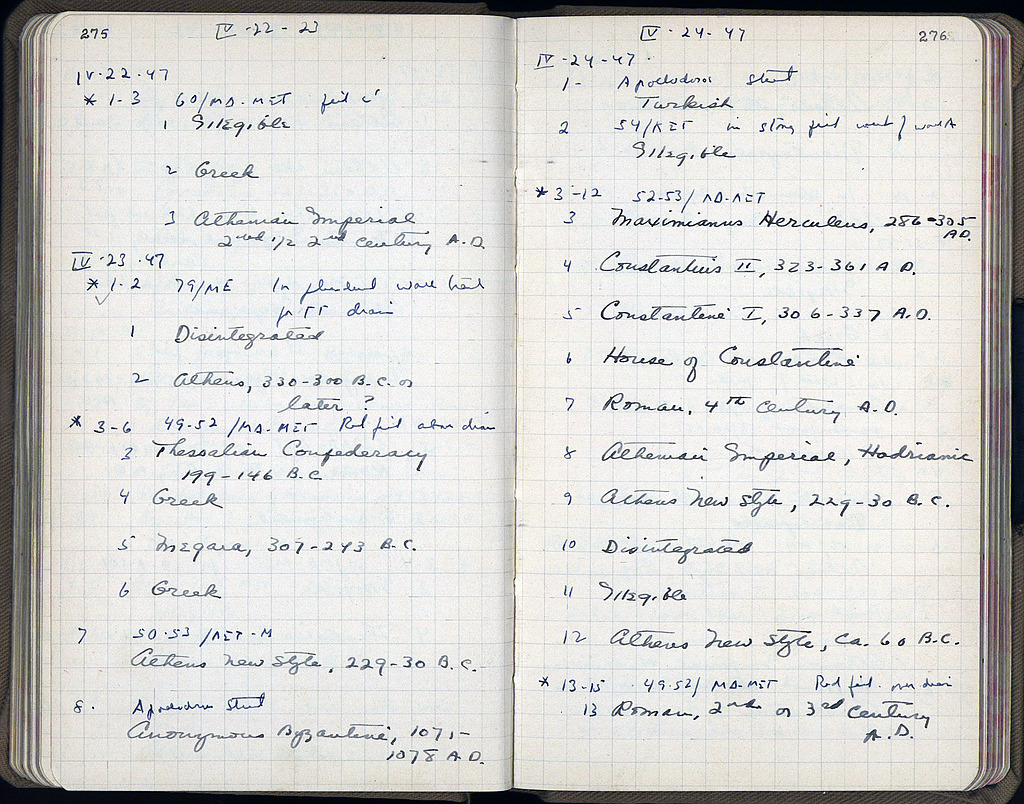 275
IV - 22 - 23
IV - 22 - 47
* 1-3 60/MD-MET fill c'
1 Illegible
2 Greek
3 Athenian Imperial
2nd 1/2 2nd century A.D.
IV - 23 - 47
* 1-2 79/ME In
drain
1 Disintegrated
2 Athens, 330-300 B.C. or
later ?
* 3-6 49-52/MD-MET Red fill above drain
3 Thessalian Confederacy
199-146 B.C.
4 Greek
5 Megara, 307-243 B.C.
6 Greek
7 50-53/
Athens New Style, 229-30 B.C.
8. Apollodorus Street
Anonymous Byzantine, 1071-
1078 A.D.
IV - 24 - 47
276
IV - 24 - 47
1- Apollodorus Street
Turkish
2 54/ in strong fill west of wall A
Illegible
* 3-12 52-53/MD-MET
3 Maximianus Herculeus, 286-305
A.D.
4 Constantius II, 323-361 A.D.
5 Constantine I, 306-337 A.D.
6 House of Constantine
7 Roman, 4TH Century A.D.
8 Athenian Imperial, Hadrianic
9 Athens New Style, 229-30 B.C.
10 Disintegrated
11 Illegible
12 Athens New Style, Ca. 60 B.C.
* 13-15 49-52/MD-MET Red fill over drain
13 Roman, 2nd or 3rd century
A.D.